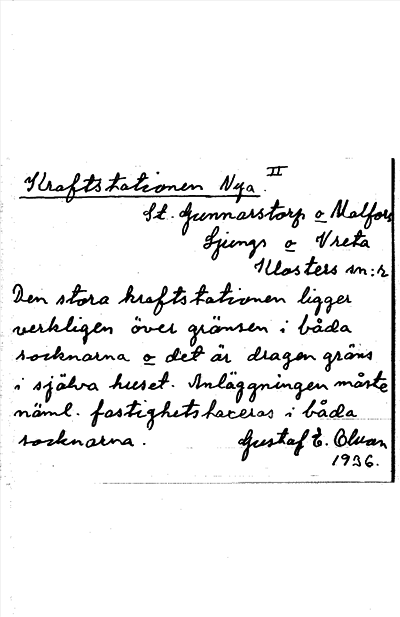 Kraftstationen Nya. II
St. Gunnarstorp o Malfors
Ljungs o Vreta
Klosters sn:r
Den stora kraftstationen ligger
verkligen över gränsen i båda
socknarna o det är dragen gräns
i själva huset. Anläggningen måste
näml. fastighetstaxeras i båda
socknarna. Gustaf E. Olvan
1936.